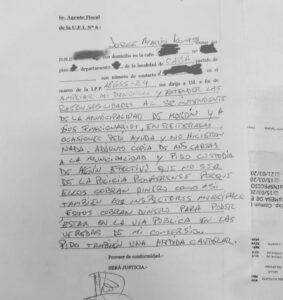 Sr. Agente Fiscal
de la U.F.I. N° 6:
JORGE
D.N.I. con domicilio en la calle
piso departamento de la localidad de CABA partido de
con número de contacto
marco de la I.P.P. me dirijo a Ud. a fin de
AMPLIAR MI DENUNCIA Y EXTENDER LAS
RESPONSABILIDADES AL SR INTENDENTE
DE LA MUNICIPALIDAD DE MORÓN Y A
SUS FUNCIONARIOS, EN REITERADAS
OCASIONES PEDI AYUDA Y NO HICIERON
NADA. ADJUNTO COPIA DE MIS CARTAS
A LA MUNICIPALIDAD Y PIDO CUSTODIA
DE ALGÚN EFECTIVO QUE NO SEA
DE LA POLICIA BONAERENSE PORQUE
ELLOS COBRAN DINERO COMO ASI
TAMBIEN LOS INSPECTORES MUNICIPALES
ESTOS COBRAN DINERO PARA PODER
ESTAR EN LA VÍA PUBLICA EN LAS
VEREDAS DE MI COMERCIO.
PIDO TAMBIÉN UNA MEDIDA CAUTELAR.
Proveer de conformidad.-
SERÁ JUSTICIA.-